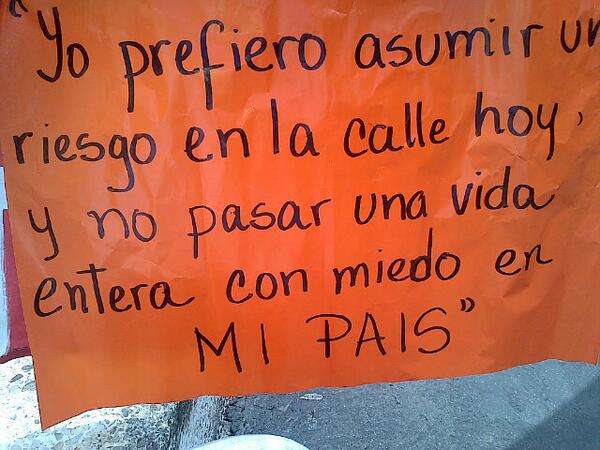 "Yo prefiero asumir un
riesgo en la calle hoy,
y no pasar una vida
entera con miedo en
MI PAIS"